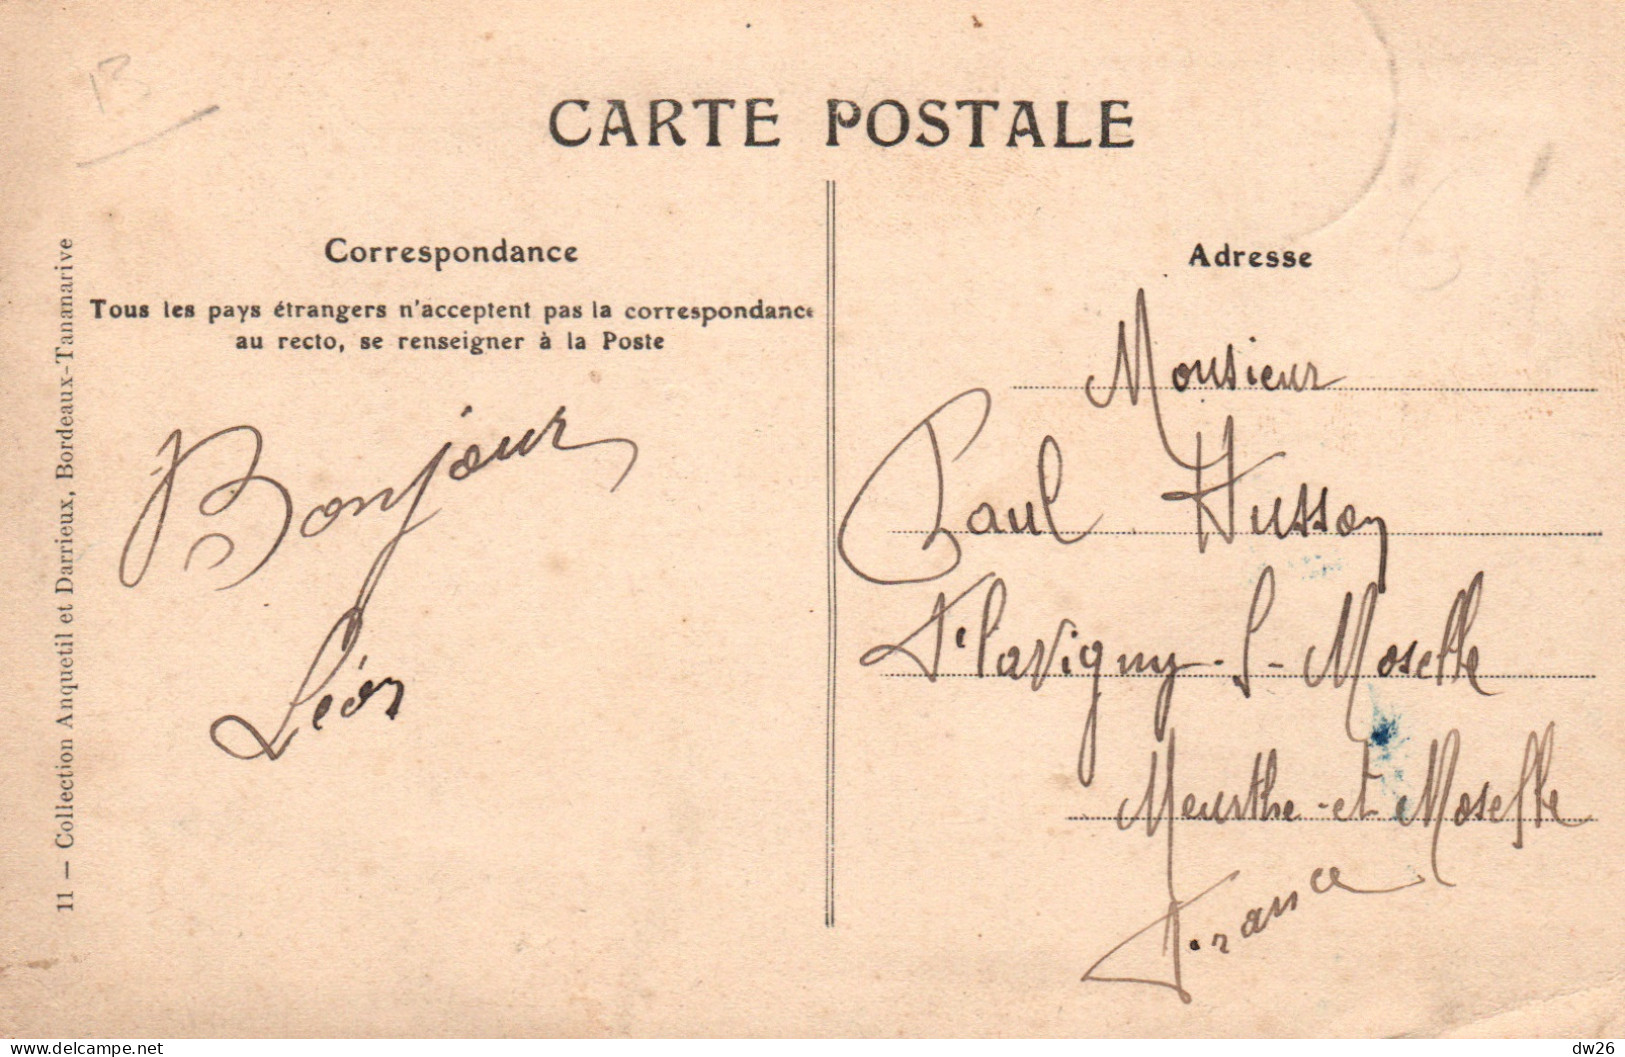 CARTE POSTALE
Correspondance
Tous les pays étrangers n'acceptent pas la correspondance
au recto, se renseigner à la Poste
Bonjour
Léon
11 — Collection Anquetil et Darrieux, Bordeaux-Tananarive
Adresse
Monsieur
Paul Husson
Flavigny-s-Moselle
Meurthe-et-Moselle
France
13
dw26